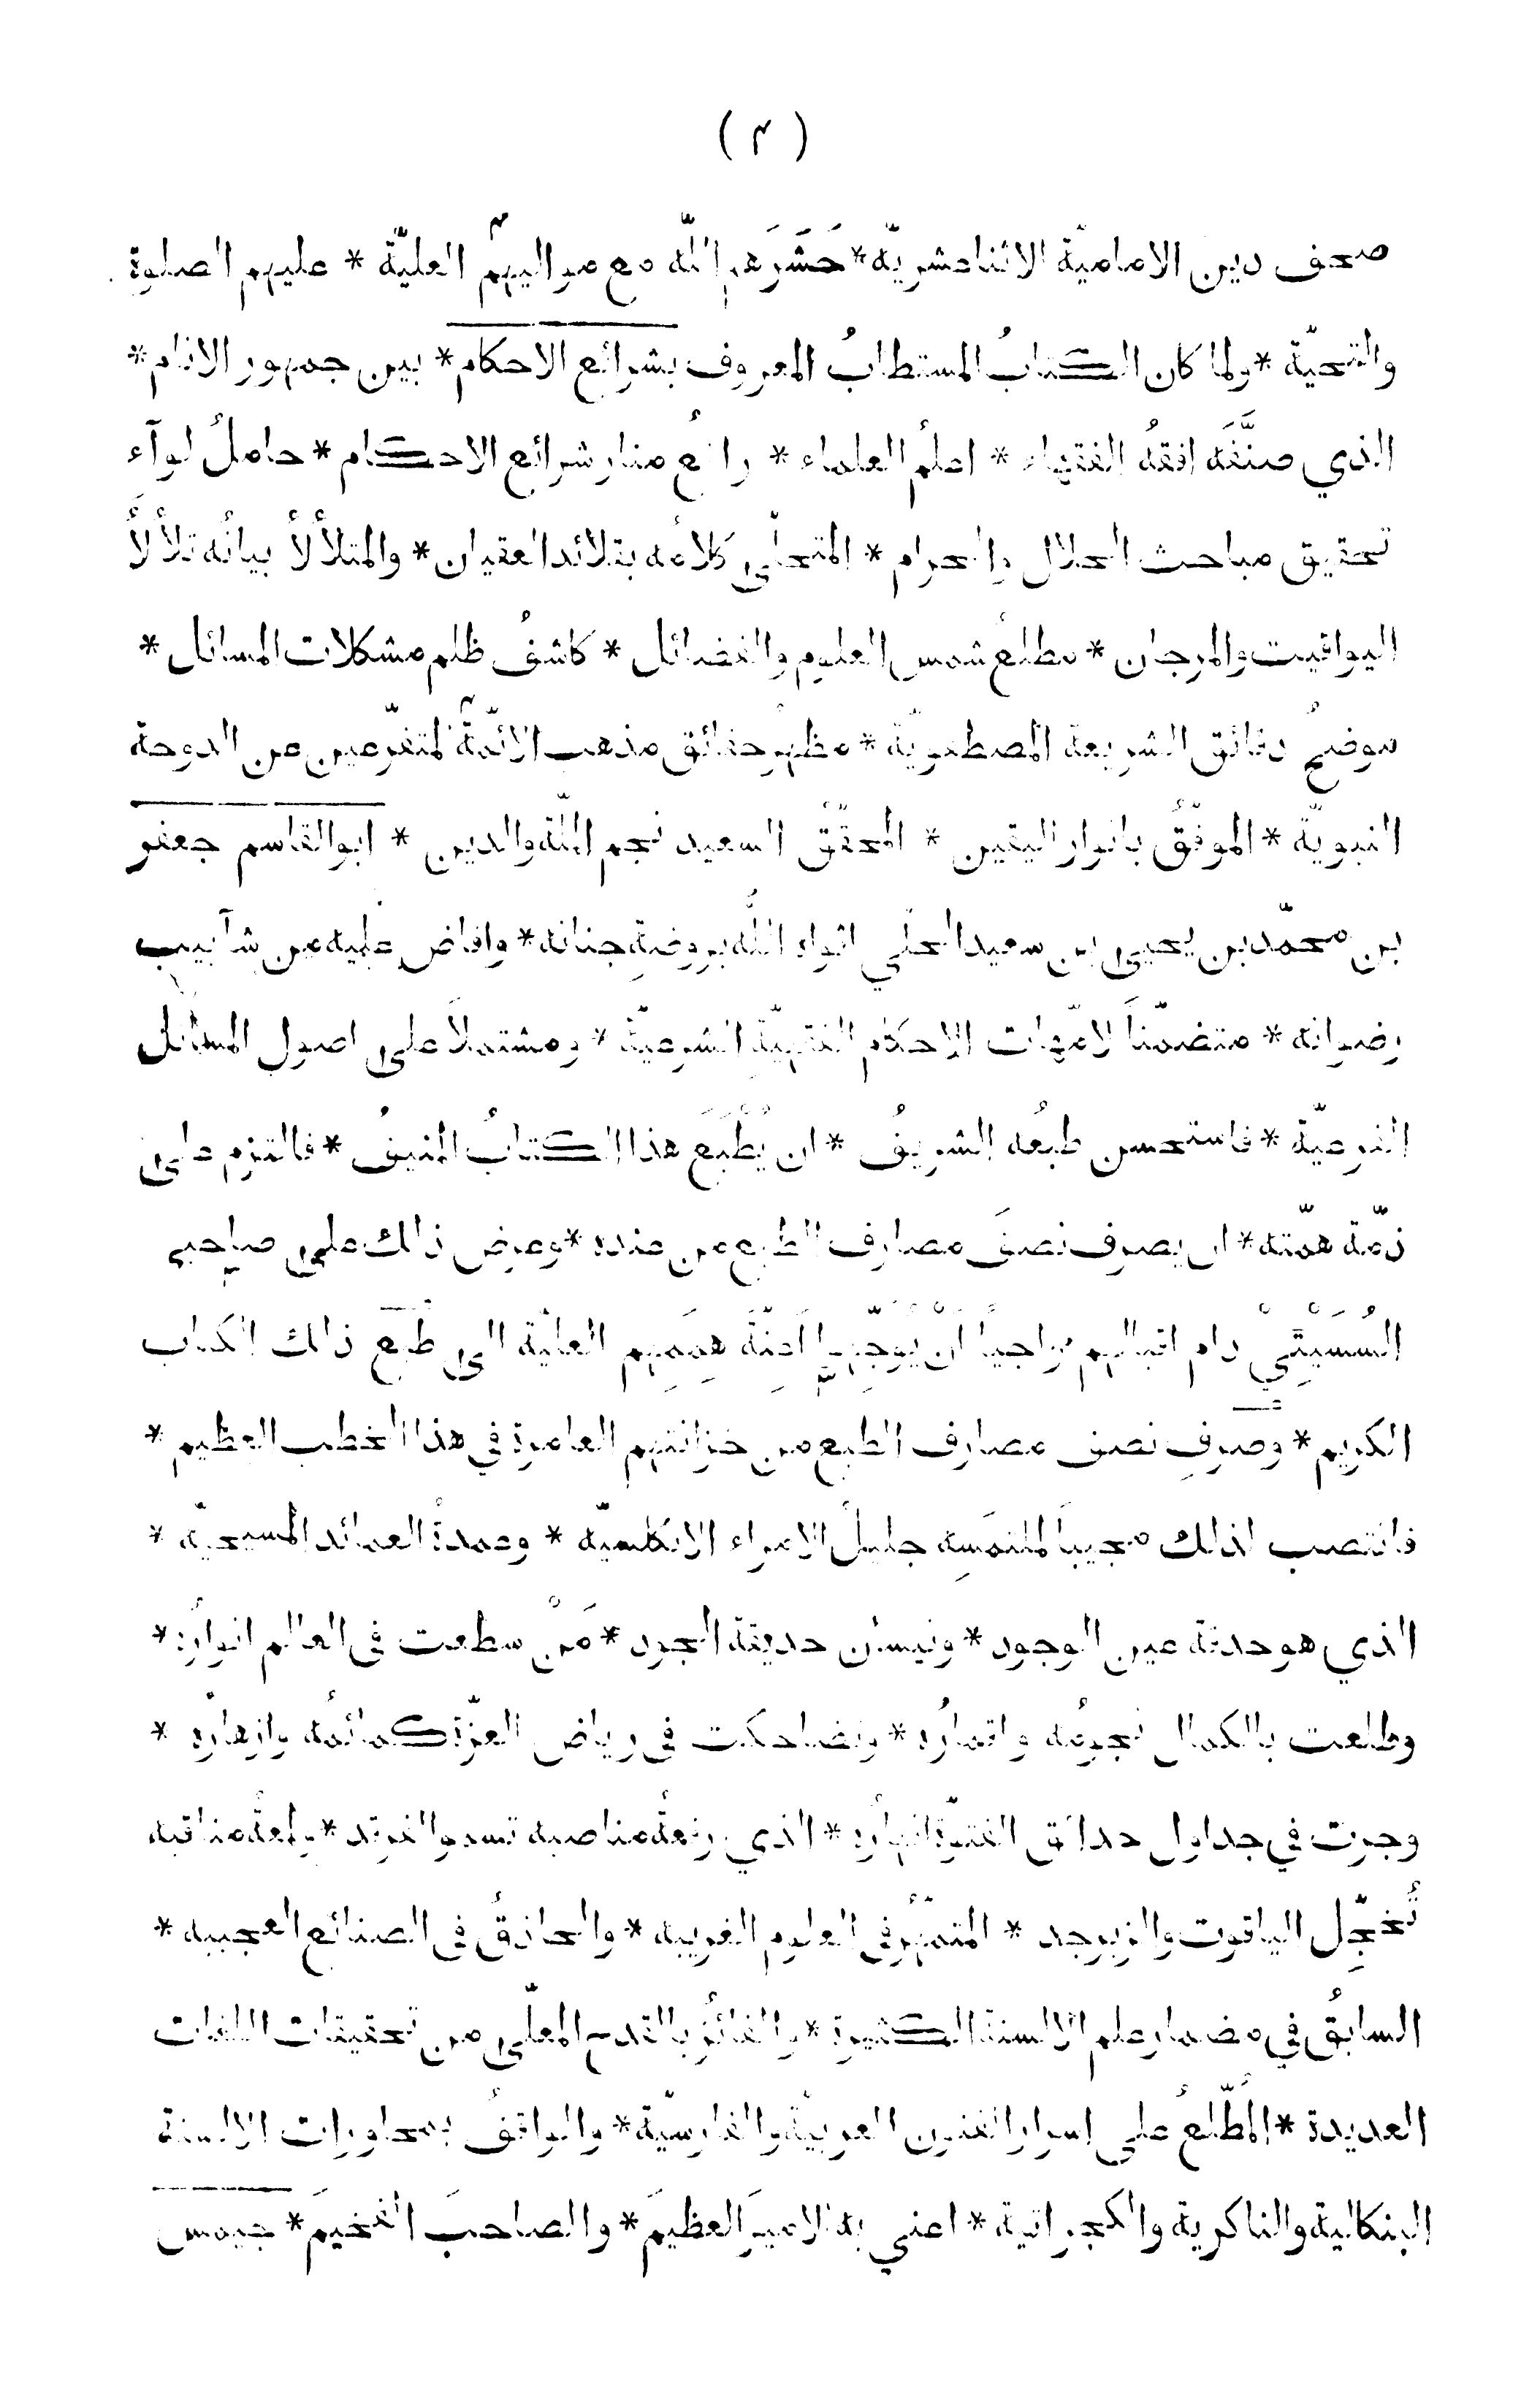 ( ٣ )
صحف دين الاماميّة الاثناعشريّة * حَشَرَهم اللّه مع مواليهم العليّة * عليهم الصلوة
والتحيّة * ولما كان الكتابُ المستطابُ المعروف بشرائع الاحكام * بين جمهور الانام *
الذي صنَّفَه افقهُ الفقهاء * اعلمُ العلماء * رافعُ منار شرائع الاحكام * حاملُ لوآء
تحقيق مباحث الحلال والحرام * المتحلّي كلامُه بقلائد العقيان * والمتلألأ بيانُه تلألأَ
اليواقيت والمرجان * مطلعُ شمس العلوم والفضائل * كاشفُ ظلم مشكلات المسائل *
موضحُ دقائق الشريعة المصطفويّة * مظهر حقائق مذهب الائمّة المتفرّعين عن الدوحة
النبويّة * الموفّقُ بانوار اليقين * المحقّقُ السعيد نجم الملّة والدين * ابوالقاسم جعفر
بن محمّد بن يحيى بن سعيد الحلّي اثواه اللّه بروضةِ جنانه * وافاض عليه من شآبيب
رضوانه * متضمّناً لامّهات الاحكام الفقهيّة الشرعيّة * ومشتملاً على اصول المسائل
الفرعيّة * فاستحسن طبعُه الشريفُ * ان يُطْبَعَ هذا الكتابُ المنيفُ * فالتزم على
ذمّة همّته * ان يصرف نصفَ مصارف الطبع من عنده * وعرض ذالك على صاحبي
السُسَيْتِيْ دام اقبالهم راجياً اَنْ يُوَجِّهوا اَعِنَّةَ هِمَمِهم العليّة الى طَبْع ذالك الكتاب
الكريم * وصرفِ نصف مصارف الطبع من خزانتهم العامرة في هذا الخطب العظيم *
فانتصب لذلك مجيباً لملتمَسِه جليلُ الامراء الانكلسيّة * وعمدةُ العمائد المسيحيّة *
الذي هو حدقة عين الوجود * ونيسان حديقة الجود * مَنْ سطعت في العالم انواره *
وطلعت بالكمال نجومُه واقمارُه * وتضاحكت في رياض العزّة كمائمُه وازهارُه *
وجرت في جداول حدائق الفتوّة انهارُه * الذي رفعةُ مناصبه تسمو الفرقد * ولمعةُ مناقبه
تُخجِّل الياقوت والزبرجد * المتمهّرُ في العلوم الغريبه * والحاذقُ في الصنائع العجيبه *
السابقُ في مضمار علم الالسنة الكثيرة * والفائزُ بالقدح المعلّى من تحقيقات اللغات
العديدة * المُطّلعُ على اسرار الفنون العربيّة والفارسيّة * والواقفُ بمحاورات الالسنة
البنكالية والناكرية والكجراتية * اعني به الاميرَ العظيمَ * والصاحبَ الفخيمَ * جيمس